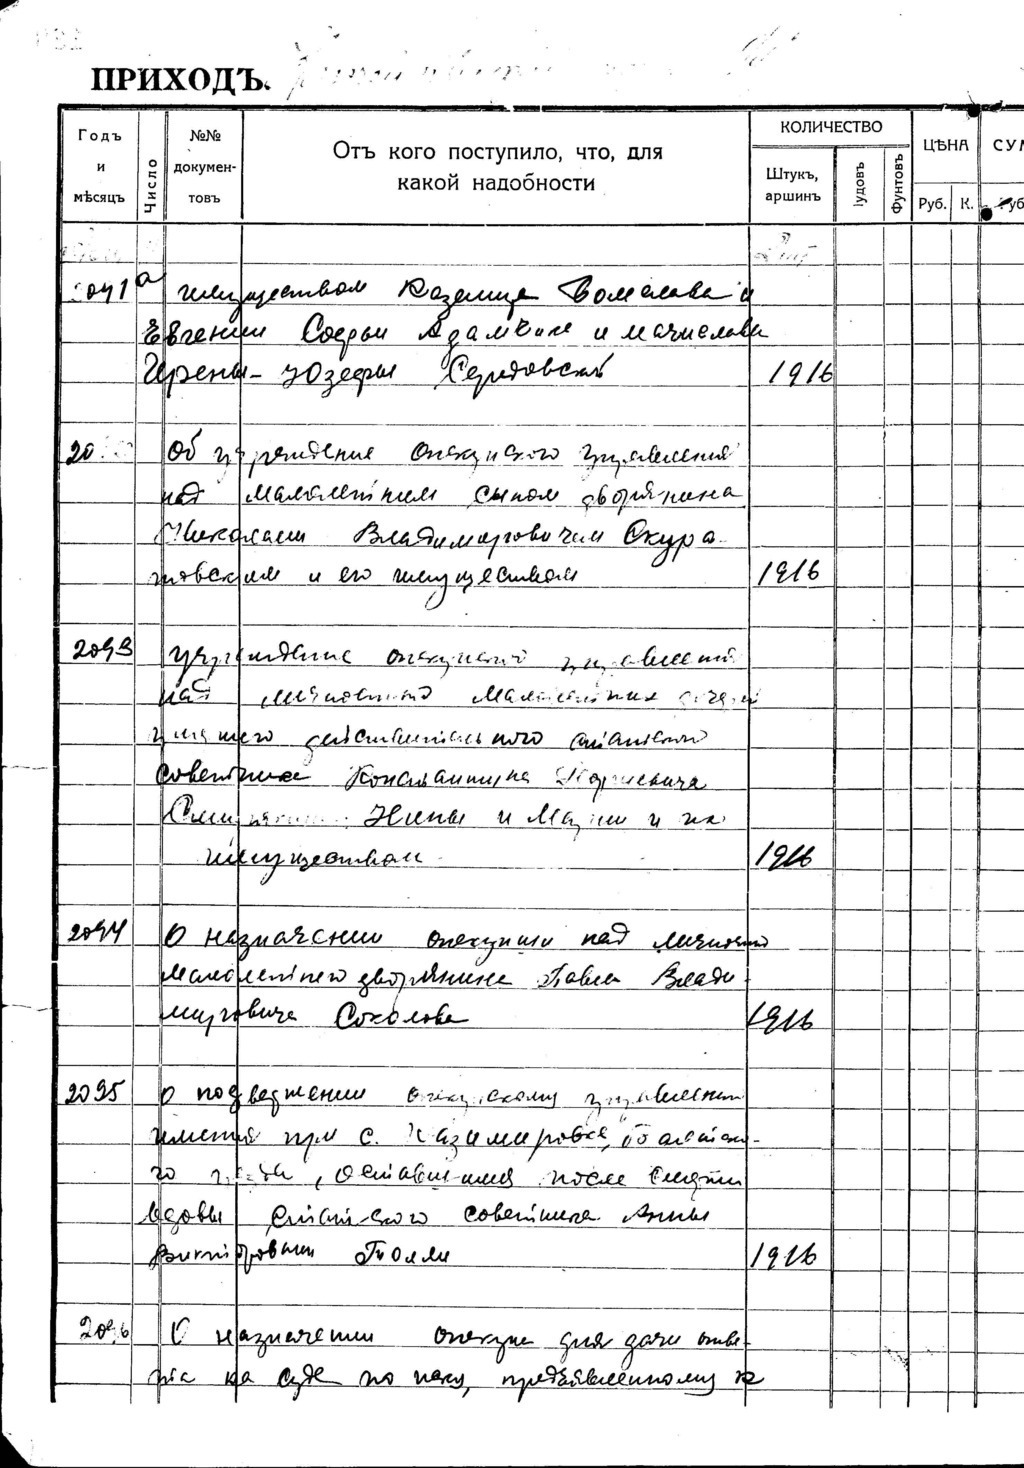 ПРИХОДЪ.
Годъ и мѣсяцъ
Число
№№ докумен-товъ
Отъ кого поступило, что, для
какой надобности
КОЛИЧЕСТВО
Штукъ, аршинъ
Пудовъ
Фунтовъ
ЦѢНА
Руб. К.
СУМ
Руб
имуществом и
Евгении Софьи и
Ирены-Юзефы 1916
Об учреждение опекунского управления
над малолетним сыном дворянина
Николаем Владимировичем Скура-
товским и его имуществом 1916
2093 учреждение опекунского управления
над личностью малолетних дочерей
умершего действительного статского
советника Константина
Нины и Марии и их
имуществом 1916
2094 О назначении опекуном над личностью
малолетнего дворянина Павла Влади-
мировича Соколова 1916
2095 О подвержении опекунскому управлению
имения при с. Казимировка,
го , оставшимся после смерти
вдовы статского советника Анны
Викторовны 1916
2096 О назначении опекуна для дачи отве-
та на суде по иску, предъявленному к